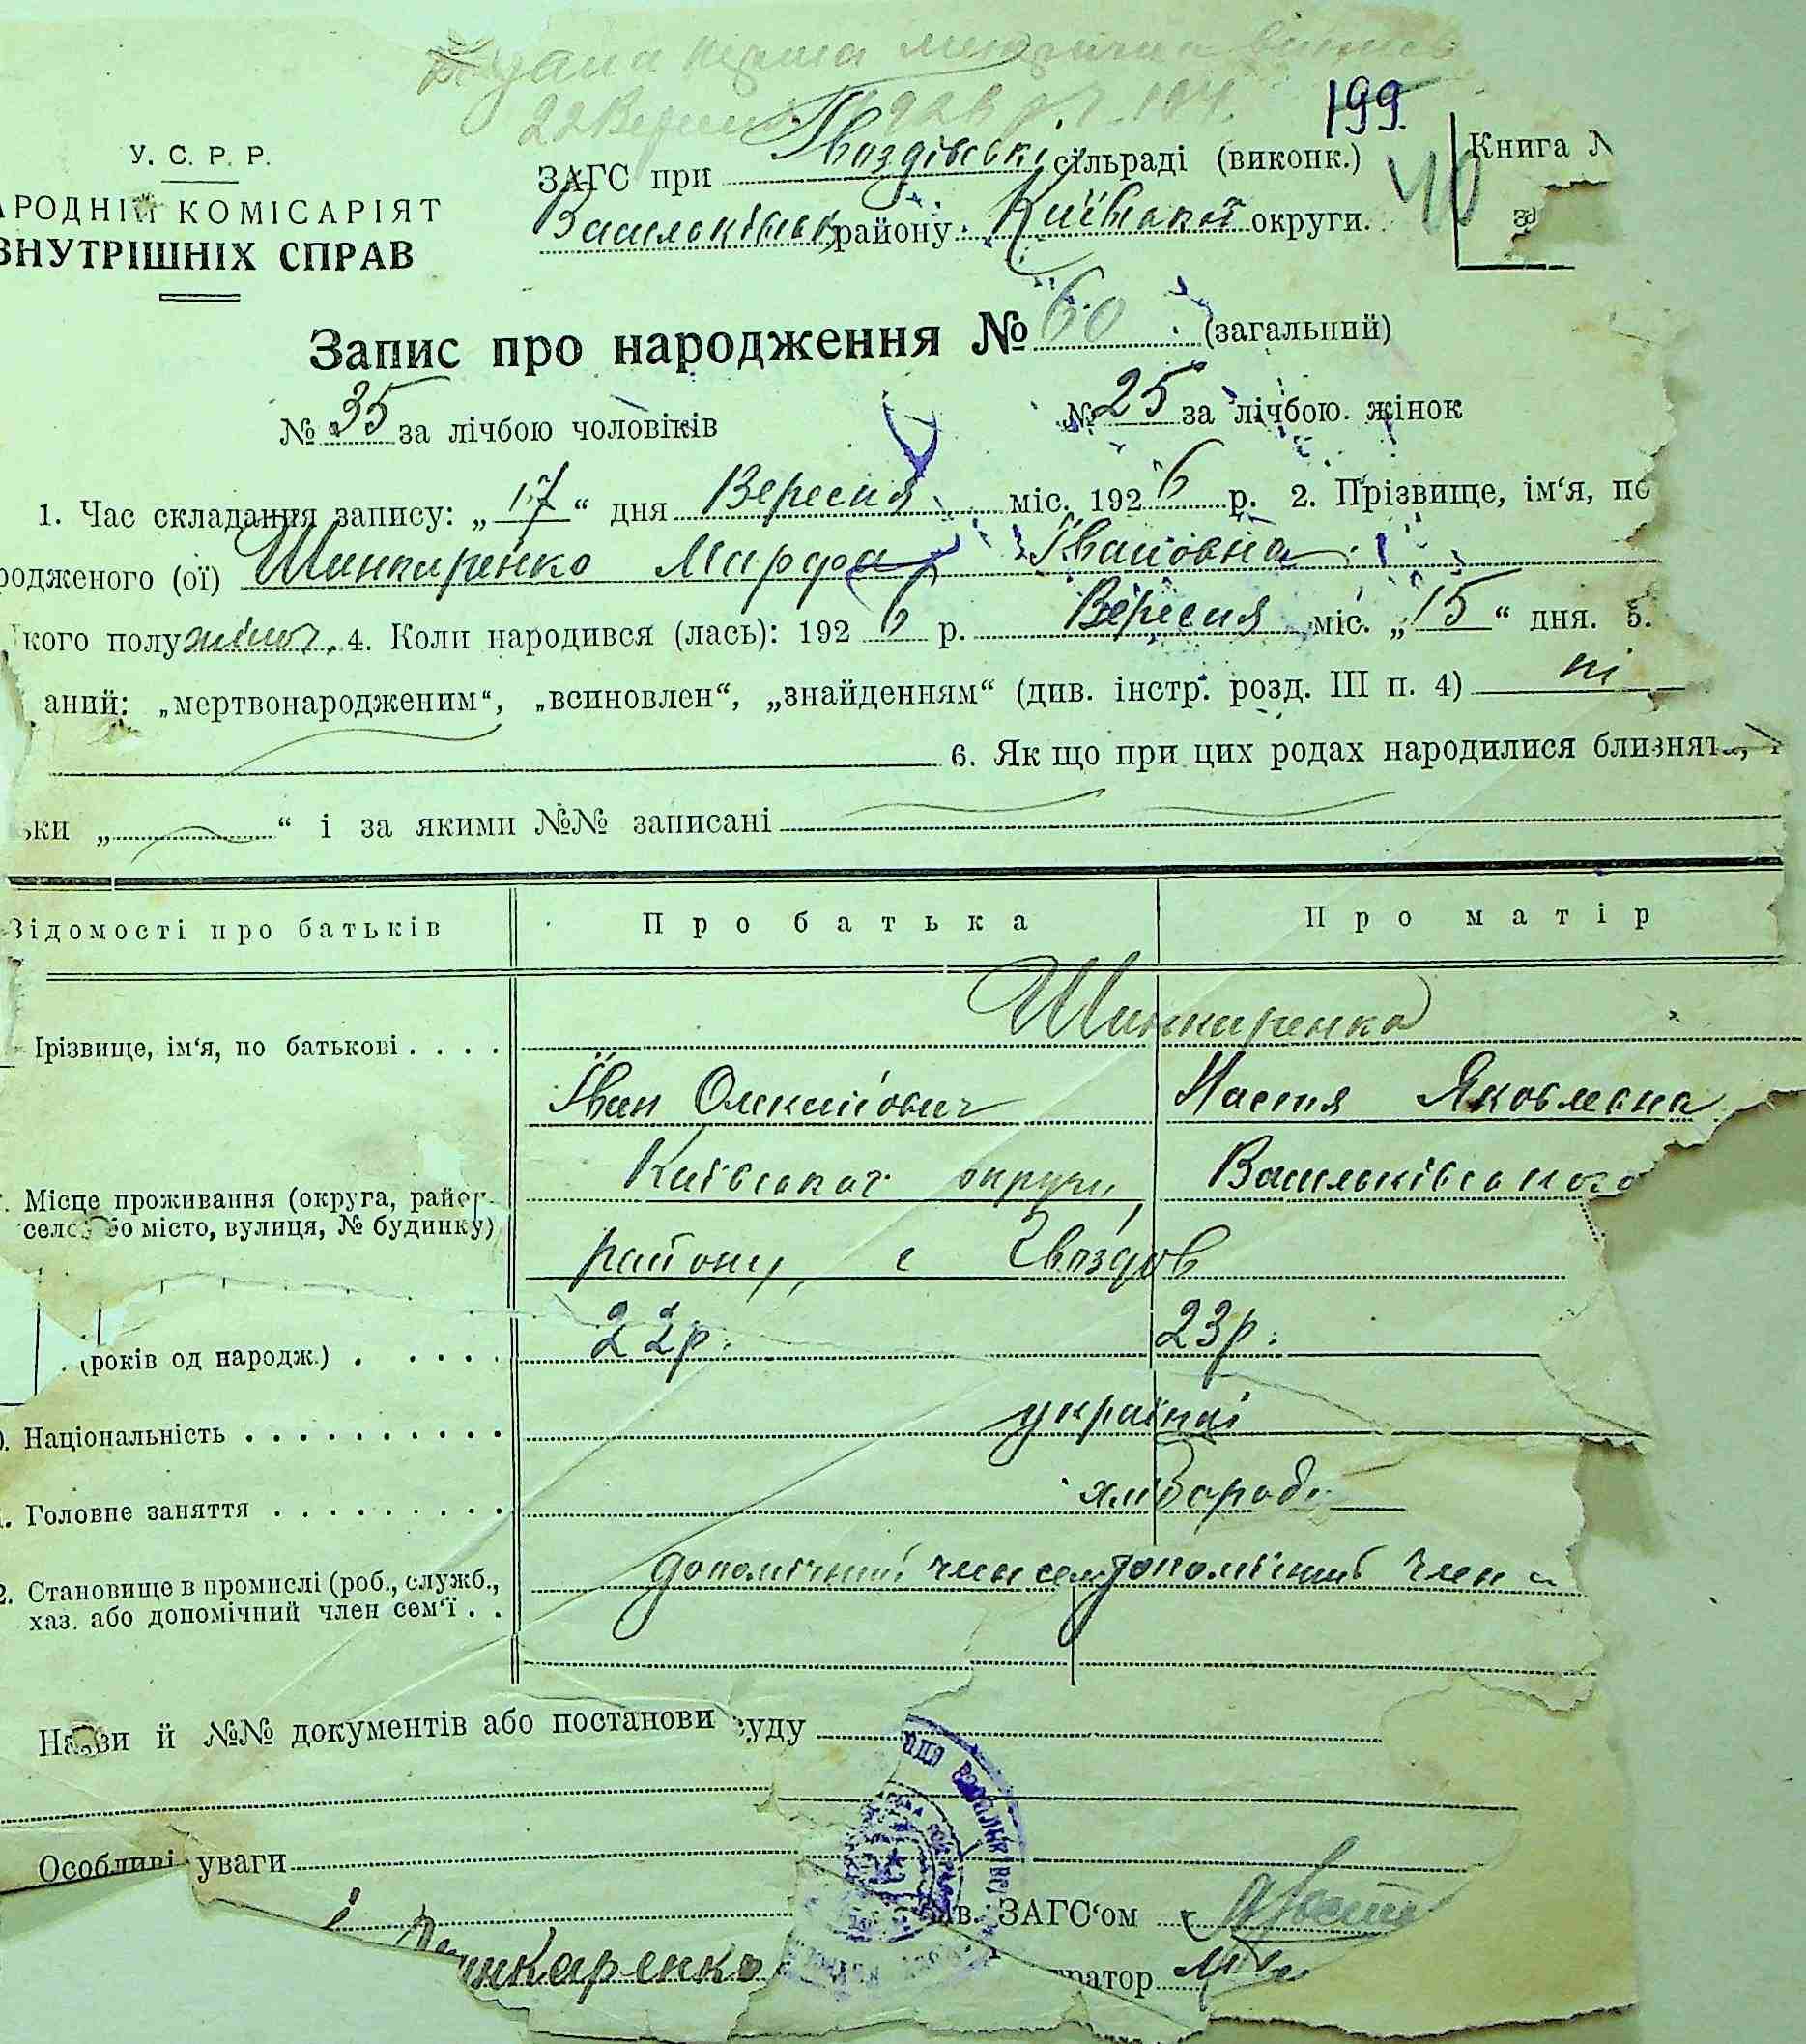 видана перша метрична випись
22 Вересня 1926 р.
199.
У. С. Р. Р.
АРОДНІЙ КОМІСАРІЯТ
ВНУТРІШНІХ СПРАВ
ЗАГС при Гвоздівські сільраді (виконк.)
Васильківськ району Київської округи.
40
Книга №
за
Запис про народження № 60 (загальний)
№ 35 за лічбою чоловіків № 25 за лічбою жінок
1. Час складання запису: „17“ дня Вересня міс. 1926 р. 2. Прізвище, ім‘я, по
родженого (ої) Шинкаренко Марфа Івановна
кого полу жіноч. 4. Коли народився (лась): 1926 р. Вересня міс. „15“ дня. 5.
аний: „мертвонародженим“, „всиновлен“, „знайденням“ (див. інстр. розд. III п. 4) ні
6. Як що при цих родах народилися близнят
ьки „ “ і за якими №№ записані
Відомості про батьків Про батька Про матір
Прізвище, ім‘я, по батькові . . . . Шинкаренко
Іван Омелянович Настя Яковлевна
Місце проживання (округа, район Київської округи, Васильківського
село або місто, вулиця, № будинку)
району, с Гвоздов
(років од народж.) . . . . . 22р. 23р.
Національність . . . . . . . . . . україн
Головне заняття . . . . . . . . . хлібороб
2. Становище в промислі (роб., служб., допомічний член сем допомічний член
хаз. або допомічний член сем‘ї . .
Назви й №№ документів або постанови суду
Особливі уваги
Зав. ЗАГС‘ом
инкаренко
ратор